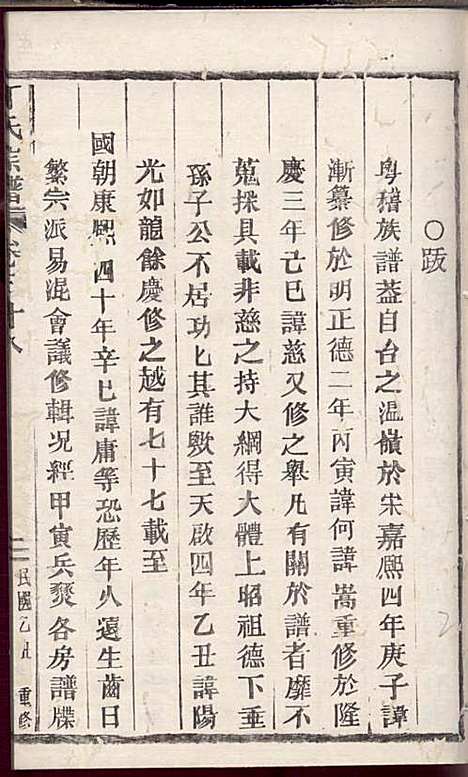 ○跋
粤稽族譜葢自台之溫嶺於宋嘉熙四年庚子諱
漸纂修於明正德二年丙寅諱何諱嵩重修於隆
慶三年己巳諱慈又修之舉凡有關於譜者靡不
蒐採具載非慈之持大綱得大體上昭祖德下垂
孫子公不居功匕其誰歟至天啟四年乙丑諱陽
光如龍餘慶修之越有七十七載至
國朝康熙四十年辛巳諱庸等恐歷年久遠生齒日
繁宗派易混會議修輯况經甲寅兵燹各房譜牒
氏宗譜
民國乙丑 重修